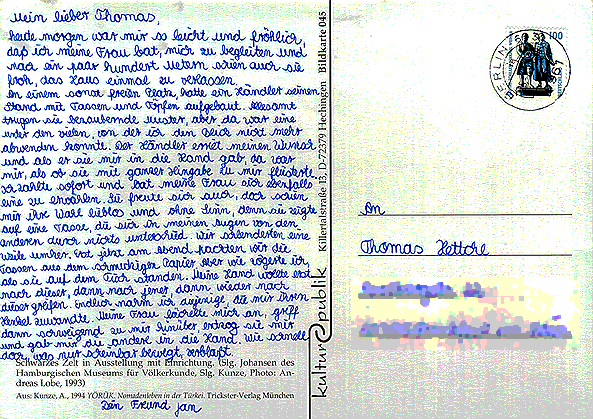 Mein lieber Thomas,
heute morgen war mir so leicht und fröhlich,
daß ich meine Frau bat, mich zu begleiten und
nach ein paar hundert Metern schien auch sie
froh, das Haus einmal zu verlassen.
An einem sonst freien Platz, hatte ein Händler seinen
Stand mit Tassen und Töpfen aufgebaut. Allesamt
trugen sie bezaubernde Muster, aber da war eine
unter den vielen, von der ich den Blick nicht mehr
abwenden konnte. Der Händler erriet meinen Wunsch
und als er sie mir in die Hand gab, da war
mir, als ob sie mit ganzer Hingabe zu mir flüsterte.
Ich zahlte sofort und bat meine Frau sich ebenfalls
eine zu erwählen. Sie freute sich auch, doch schien
mir ihre Wahl lieblos und ohne Sinn, denn sie zeigte
auf eine Tasse, die sich in meinen Augen von den
anderen durch nichts unterschied. Wir schlenderten eine
Weile umher. Erst jetzt am Abend packten wir die
Tassen aus dem schmutzigen Papier. Aber wie zögerte ich
als sie auf dem Tisch standen. Meine Hand wollte erst
nach dieser, dann nach jener, dann wieder nach
dieser greifen. Endlich nahm ich diejenige, die mir ihren
Henkel zuwandte. Meine Frau lächelte mich an, griff
dann schweigend zu mir hinüber, entzog sie mir
und gab mir die andere in die Hand. Wie schnell
doch, was mir scheinbar bewegt, verblaßt.
Schwarzes Zelt in Ausstellung mit Einrichtung. (Slg. Johansen des
Hamburgischen Museums für Völkerkunde, Slg. Kunze, Photo: An-
dreas Lobe, 1993)
Aus: Kunze, A., 1994 YÖRÜK, Nomadenleben in der Türkei. Trickster-Verlag München
Dein Freund Jan
kultur publik Killertalstraße 13, D-72379 Hechingen Bildkarte 045
100
BERLIN
An
Thomas Hettche